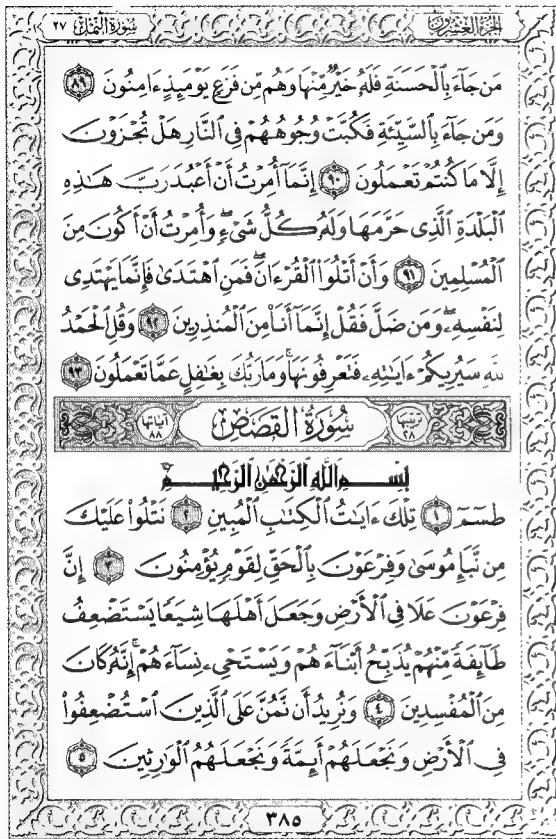 الجزء العشرون سورة النمل ٢٧
مَن جَآءَ بِٱلْحَسَنَةِ فَلَهُۥ خَيْرٌ مِّنْهَا وَهُم مِّن فَزَعٍ يَوْمَئِذٍ ءَامِنُونَ ٨٩
وَمَن جَآءَ بِٱلسَّيِّئَةِ فَكُبَّتْ وُجُوهُهُمْ فِى ٱلنَّارِ هَلْ تُجْزَوْنَ
إِلَّا مَا كُنتُمْ تَعْمَلُونَ ٩٠ إِنَّمَآ أُمِرْتُ أَنْ أَعْبُدَ رَبَّ هَٰذِهِ
ٱلْبَلْدَةِ ٱلَّذِى حَرَّمَهَا وَلَهُۥ كُلُّ شَىْءٍ ۖ وَأُمِرْتُ أَنْ أَكُونَ مِنَ
ٱلْمُسْلِمِينَ ٩١ وَأَنْ أَتْلُوَا۟ ٱلْقُرْءَانَ ۖ فَمَنِ ٱهْتَدَىٰ فَإِنَّمَا يَهْتَدِى
لِنَفْسِهِۦ ۖ وَمَن ضَلَّ فَقُلْ إِنَّمَآ أَنَا۠ مِنَ ٱلْمُنذِرِينَ ٩٢ وَقُلِ ٱلْحَمْدُ
لِلَّهِ سَيُرِيكُمْ ءَايَٰتِهِۦ فَتَعْرِفُونَهَا ۚ وَمَا رَبُّكَ بِغَٰفِلٍ عَمَّا تَعْمَلُونَ ٩٣
ترتيبها ٢٨ سُورَةُ القَصَصِ آياتها ٨٨
بِسْمِ ٱللَّهِ ٱلرَّحْمَٰنِ ٱلرَّحِيمِ
طسٓمٓ ١ تِلْكَ ءَايَٰتُ ٱلْكِتَٰبِ ٱلْمُبِينِ ٢ نَتْلُوا۟ عَلَيْكَ
مِن نَّبَإِ مُوسَىٰ وَفِرْعَوْنَ بِٱلْحَقِّ لِقَوْمٍ يُؤْمِنُونَ ٣ إِنَّ
فِرْعَوْنَ عَلَا فِى ٱلْأَرْضِ وَجَعَلَ أَهْلَهَا شِيَعًا يَسْتَضْعِفُ
طَآئِفَةً مِّنْهُمْ يُذَبِّحُ أَبْنَآءَهُمْ وَيَسْتَحْىِۦ نِسَآءَهُمْ ۚ إِنَّهُۥ كَانَ
مِنَ ٱلْمُفْسِدِينَ ٤ وَنُرِيدُ أَن نَّمُنَّ عَلَى ٱلَّذِينَ ٱسْتُضْعِفُوا۟
فِى ٱلْأَرْضِ وَنَجْعَلَهُمْ أَئِمَّةً وَنَجْعَلَهُمُ ٱلْوَٰرِثِينَ ٥
٣٨٥